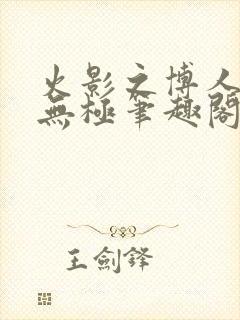 火影之博人
無極筆趣閣
王劍鋒